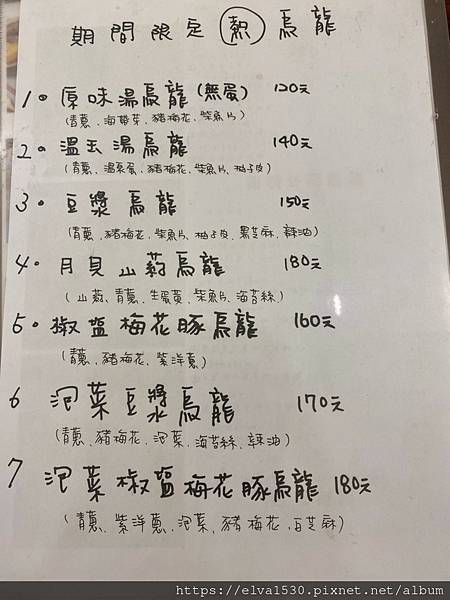 期間限定 熱 烏龍
1。原味湯烏龍(無蛋) 120元
(青蔥、海帶芽、豬梅花、柴魚片)
2。溫玉湯烏龍 140元
(青蔥、溫泉蛋、豬梅花、柴魚片、柚子皮)
3。豆漿烏龍 150元
(青蔥、豬梅花、柴魚片、柚子皮、黑芝麻、辣油)
4。月見山藥烏龍 180元
(山藥、青蔥、生蛋黃、柴魚片、海苔絲)
5。椒盐梅花豚烏龍 160元
(青蔥、豬梅花、紫洋蔥)
6 泡菜豆漿烏龍 170元
(青蔥、豬梅花、泡菜、海苔絲、辣油)
7 泡菜椒盐梅花豚烏龍 180元
(青蔥、紫洋蔥、泡菜、豬梅花、白芝麻)
https://elva1530.pixnet.net/album